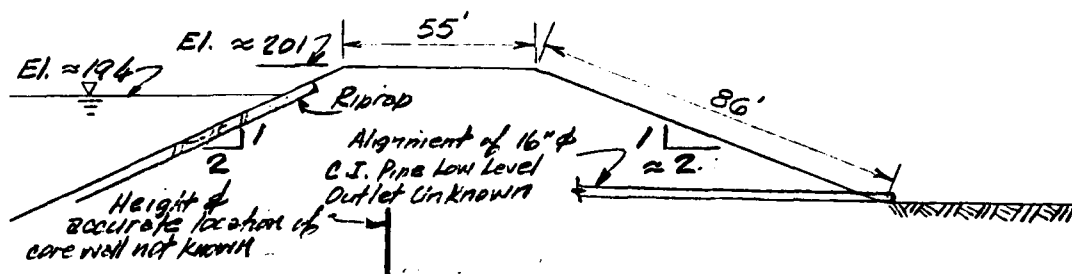 55'
El. ≈ 201
El. ≈ 194
Riprap
86'
1
2
1
≈ 2.
Alignment of 16" φ
C.I. Pipe Low Level
Outlet Unknown
Height &
accurate location of
core wall not known